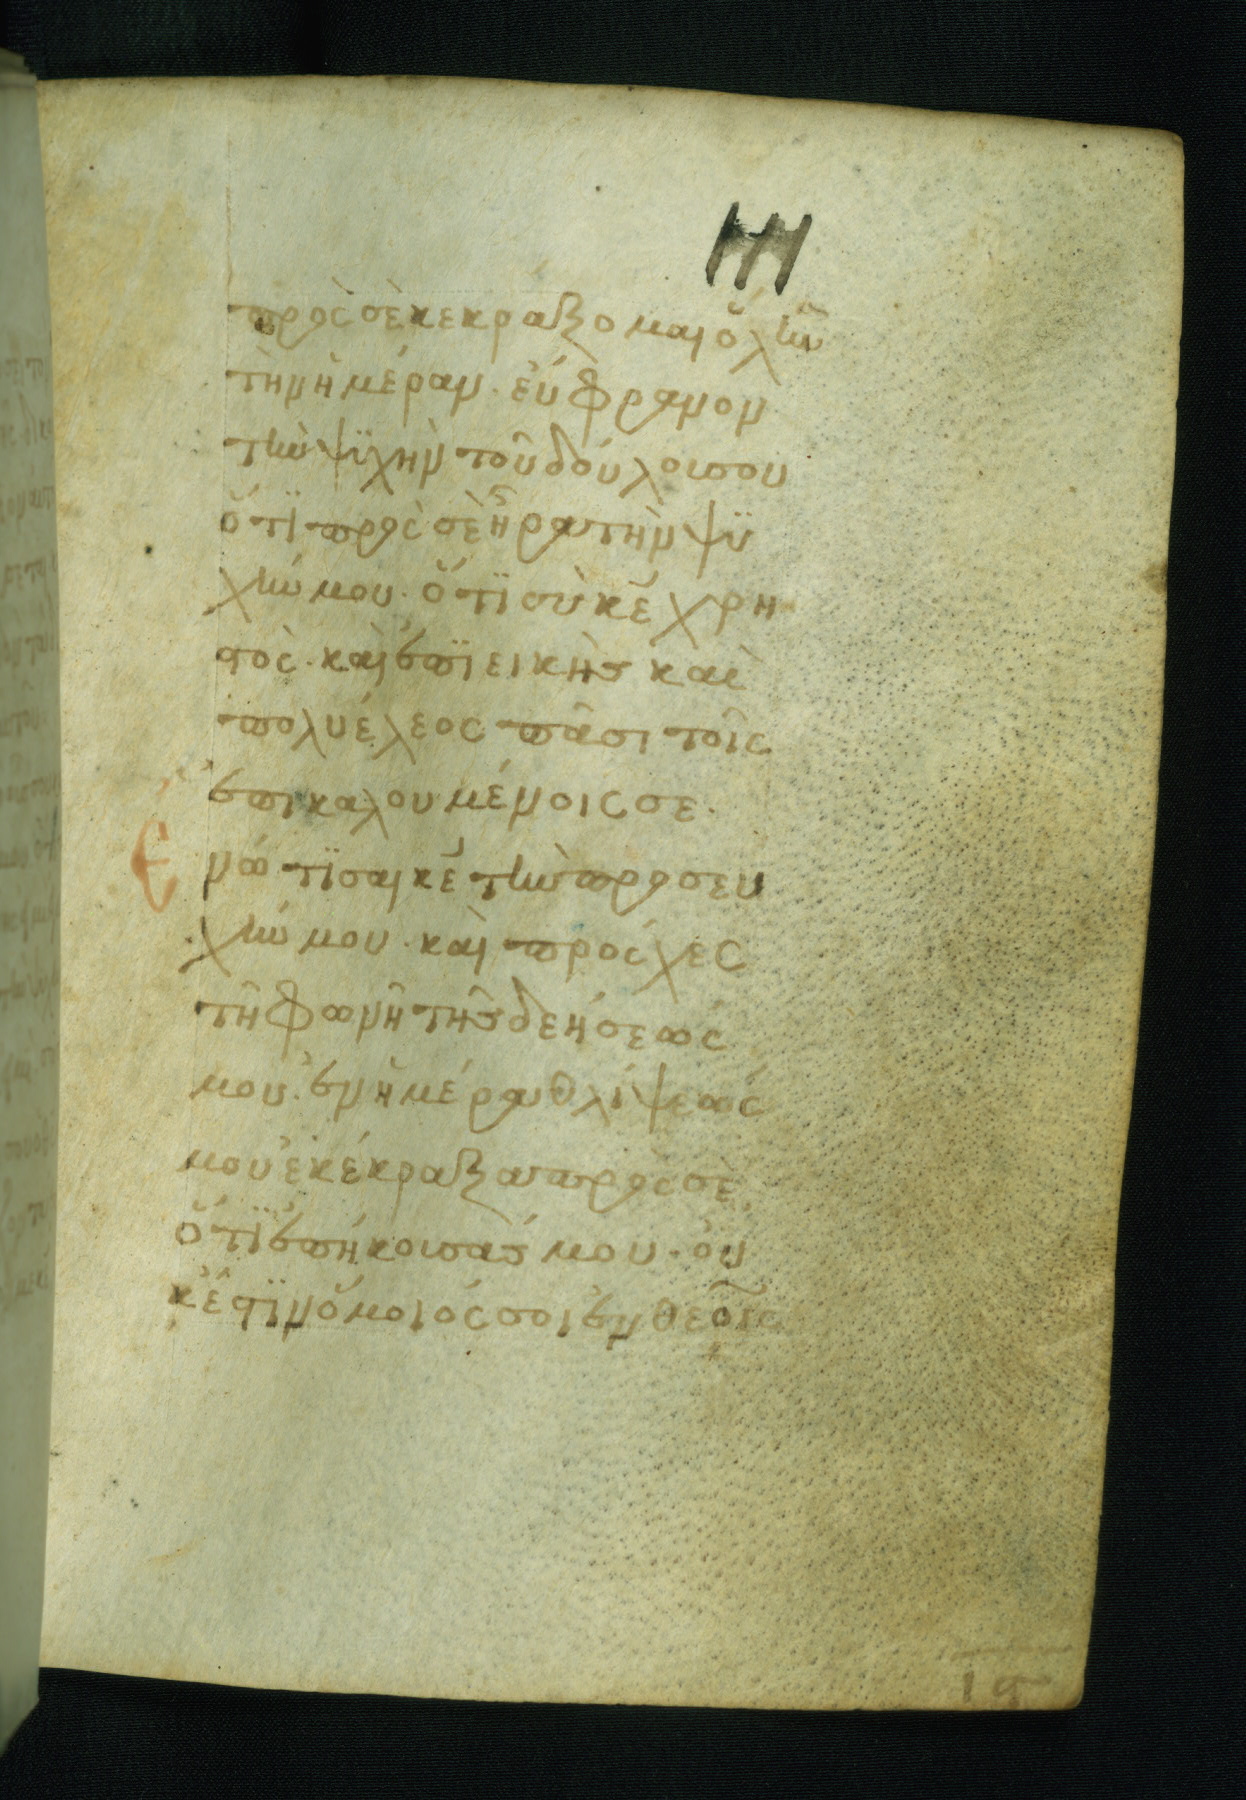 πρὸς σὲ κεκράξομαι ὅλην
τὴν ἡμέραν· εὔφρανον
τὴν ψϋχὴν τοῦ δούλου σου
ὅτϊ πρὸς σὲ ἦρα τὴν ψϋ
χήν μου· ὅτϊ σὺ κε̅ χρη
στὸς· καὶ ἐπϊεικὴς καὶ
πολυέλεος πᾶσι τοῖς
ἐπικαλουμένοις σε·
Ενώτϊσαι κε̅ τὴν προσευ
χήν μου· καὶ πρόσχες
τῆ φωνῆ τῆς δεήσεώς
μου· ἐν ἡμέρα θλίψεώς
μου ἐκέκραξα πρὸς σὲ
ὅτϊ ἐπήκουσάς μου· οὐκ
ἔστϊν ὅμοιός σοι ἐν θεοῖς